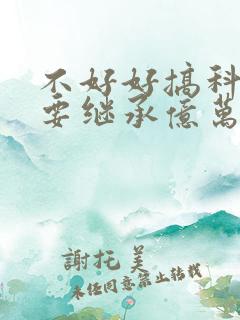 不好好搞科
要继承億萬
謝托美
未任同意禁止转载